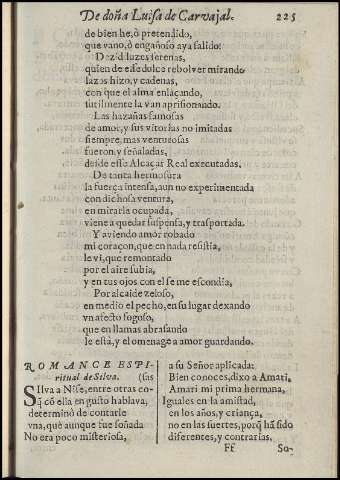 De doña Luisa de Carvajal. 225
de bien he, ò pretendido,
que vano, ò engañoso aya salido:
Dezid luzes serenas,
quien de esse dulce rebolver mirando
lazos hizo, y cadenas,
con que el alma enlaçando,
sutilmente la van aprisonando.
Las hazañas famosas
de amor, y sus vitorias no imitadas
siempre, mas venturosas
fueron, y señaladas,
desde esse Alcaçar Real executadas.
De tanta hermosura
la fuerça intensa, aun no experimentada
con dichosa ventura,
en mirarla ocupada,
viene a quedar suspensa, y trasportada.
Y aviendo amor robado
mi coraçon, que en nada resistia,
le vi, que remontado
por el aire subia,
y en tus ojos con el se me escondia,
Por alcaide zeloso,
en medio el pecho, en su lugar dexando
vn afecto fogoso,
que en llamas abrasando
le està, y el omenage a amor guardando.
ROMANCE ESPI-
ritual de Silva. (sas
SIlva a Nise, entre otras co-
q̃ cõ ella en gusto hablava,
determinò de contarle
vna, què aunque fue soñada
No era poco misteriosa,
a su Señor aplicada:
Bien conoces, dixo a Amari,
Amari mi prima hermana,
Iguales en la amistad,
en los años, y criança,
no en las suertes, porq̃ hã sido
diferentes, y contrarias.
Ff So-